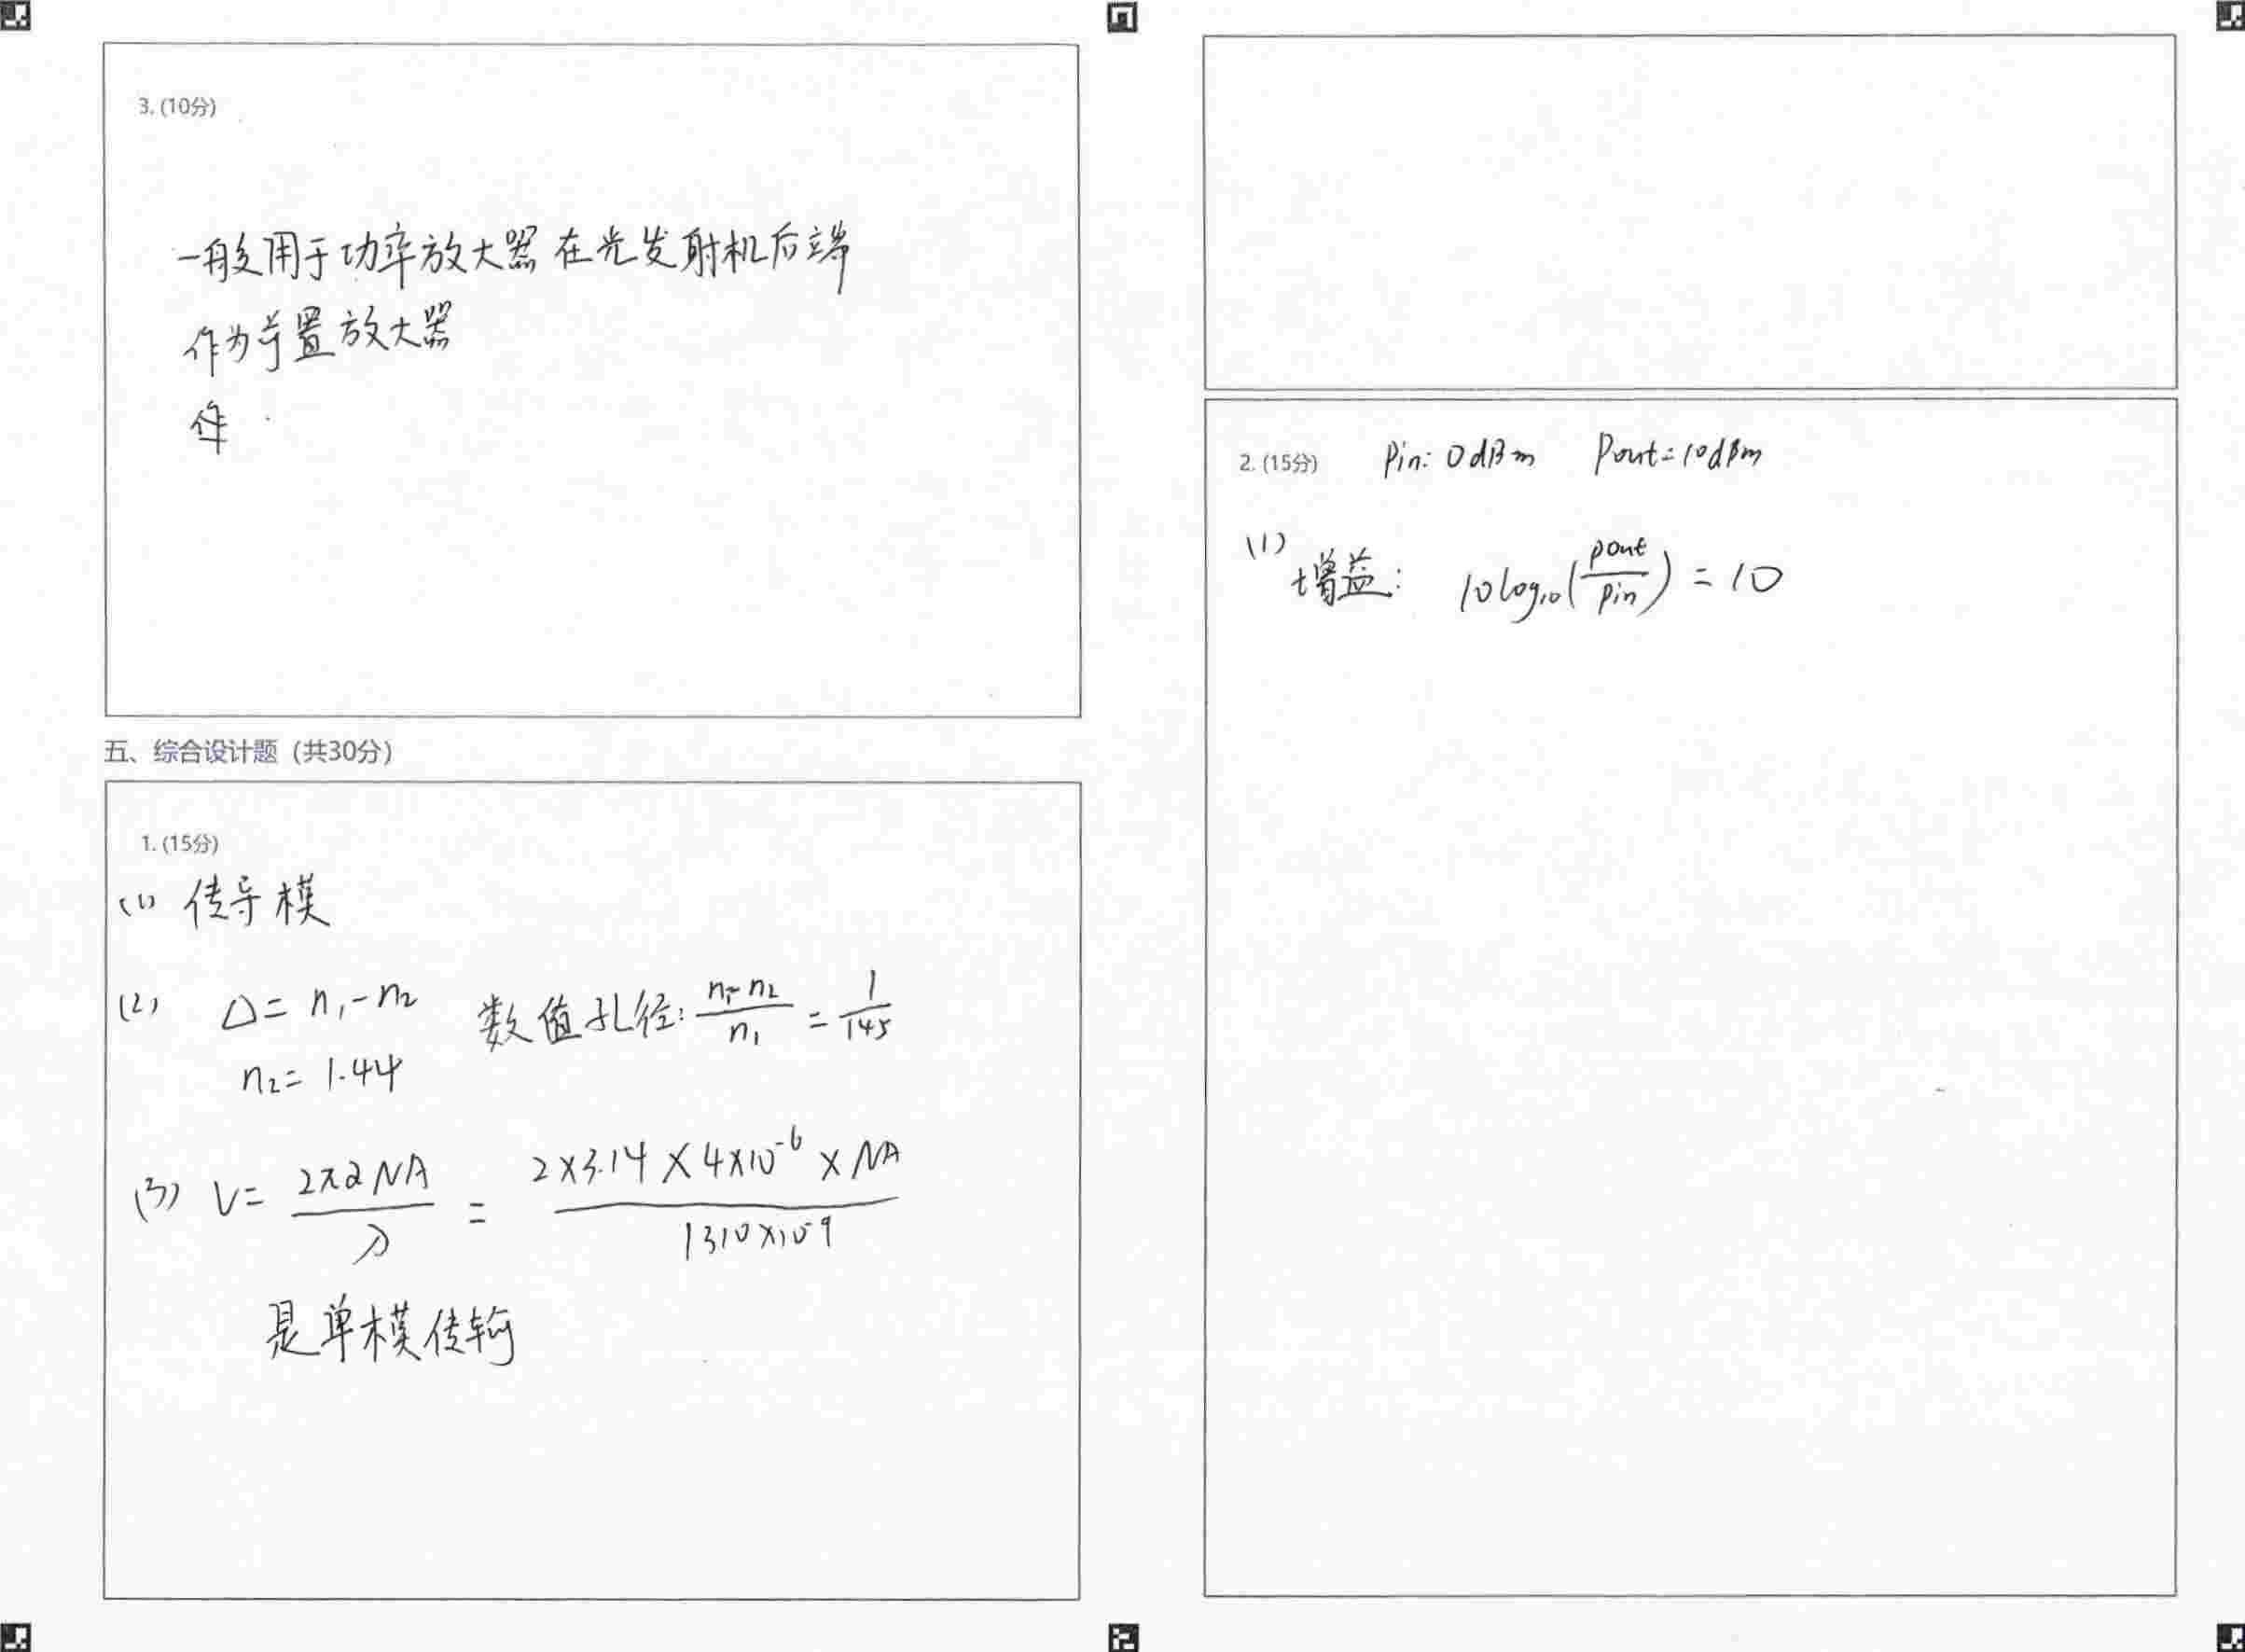 3. (10分)
一般用于功率放大器在光发射机后端
作为前置放大器
作
五、综合设计题（共30分）
1. (15分)
(1) 传导模
(2) Δ= n₁-n₂ 数值孔径: (n₁-n₂)/n₁ = 1/145
n₂= 1.44
(3) V= 2πaNA/λ = 2×3.14×4×10⁻⁶×NA/1310×10⁻⁹
是单模传输
2. (15分) Pin: 0dBm Pout=10dBm
(1) 增益: 10log₁₀(Pout/Pin) = 10